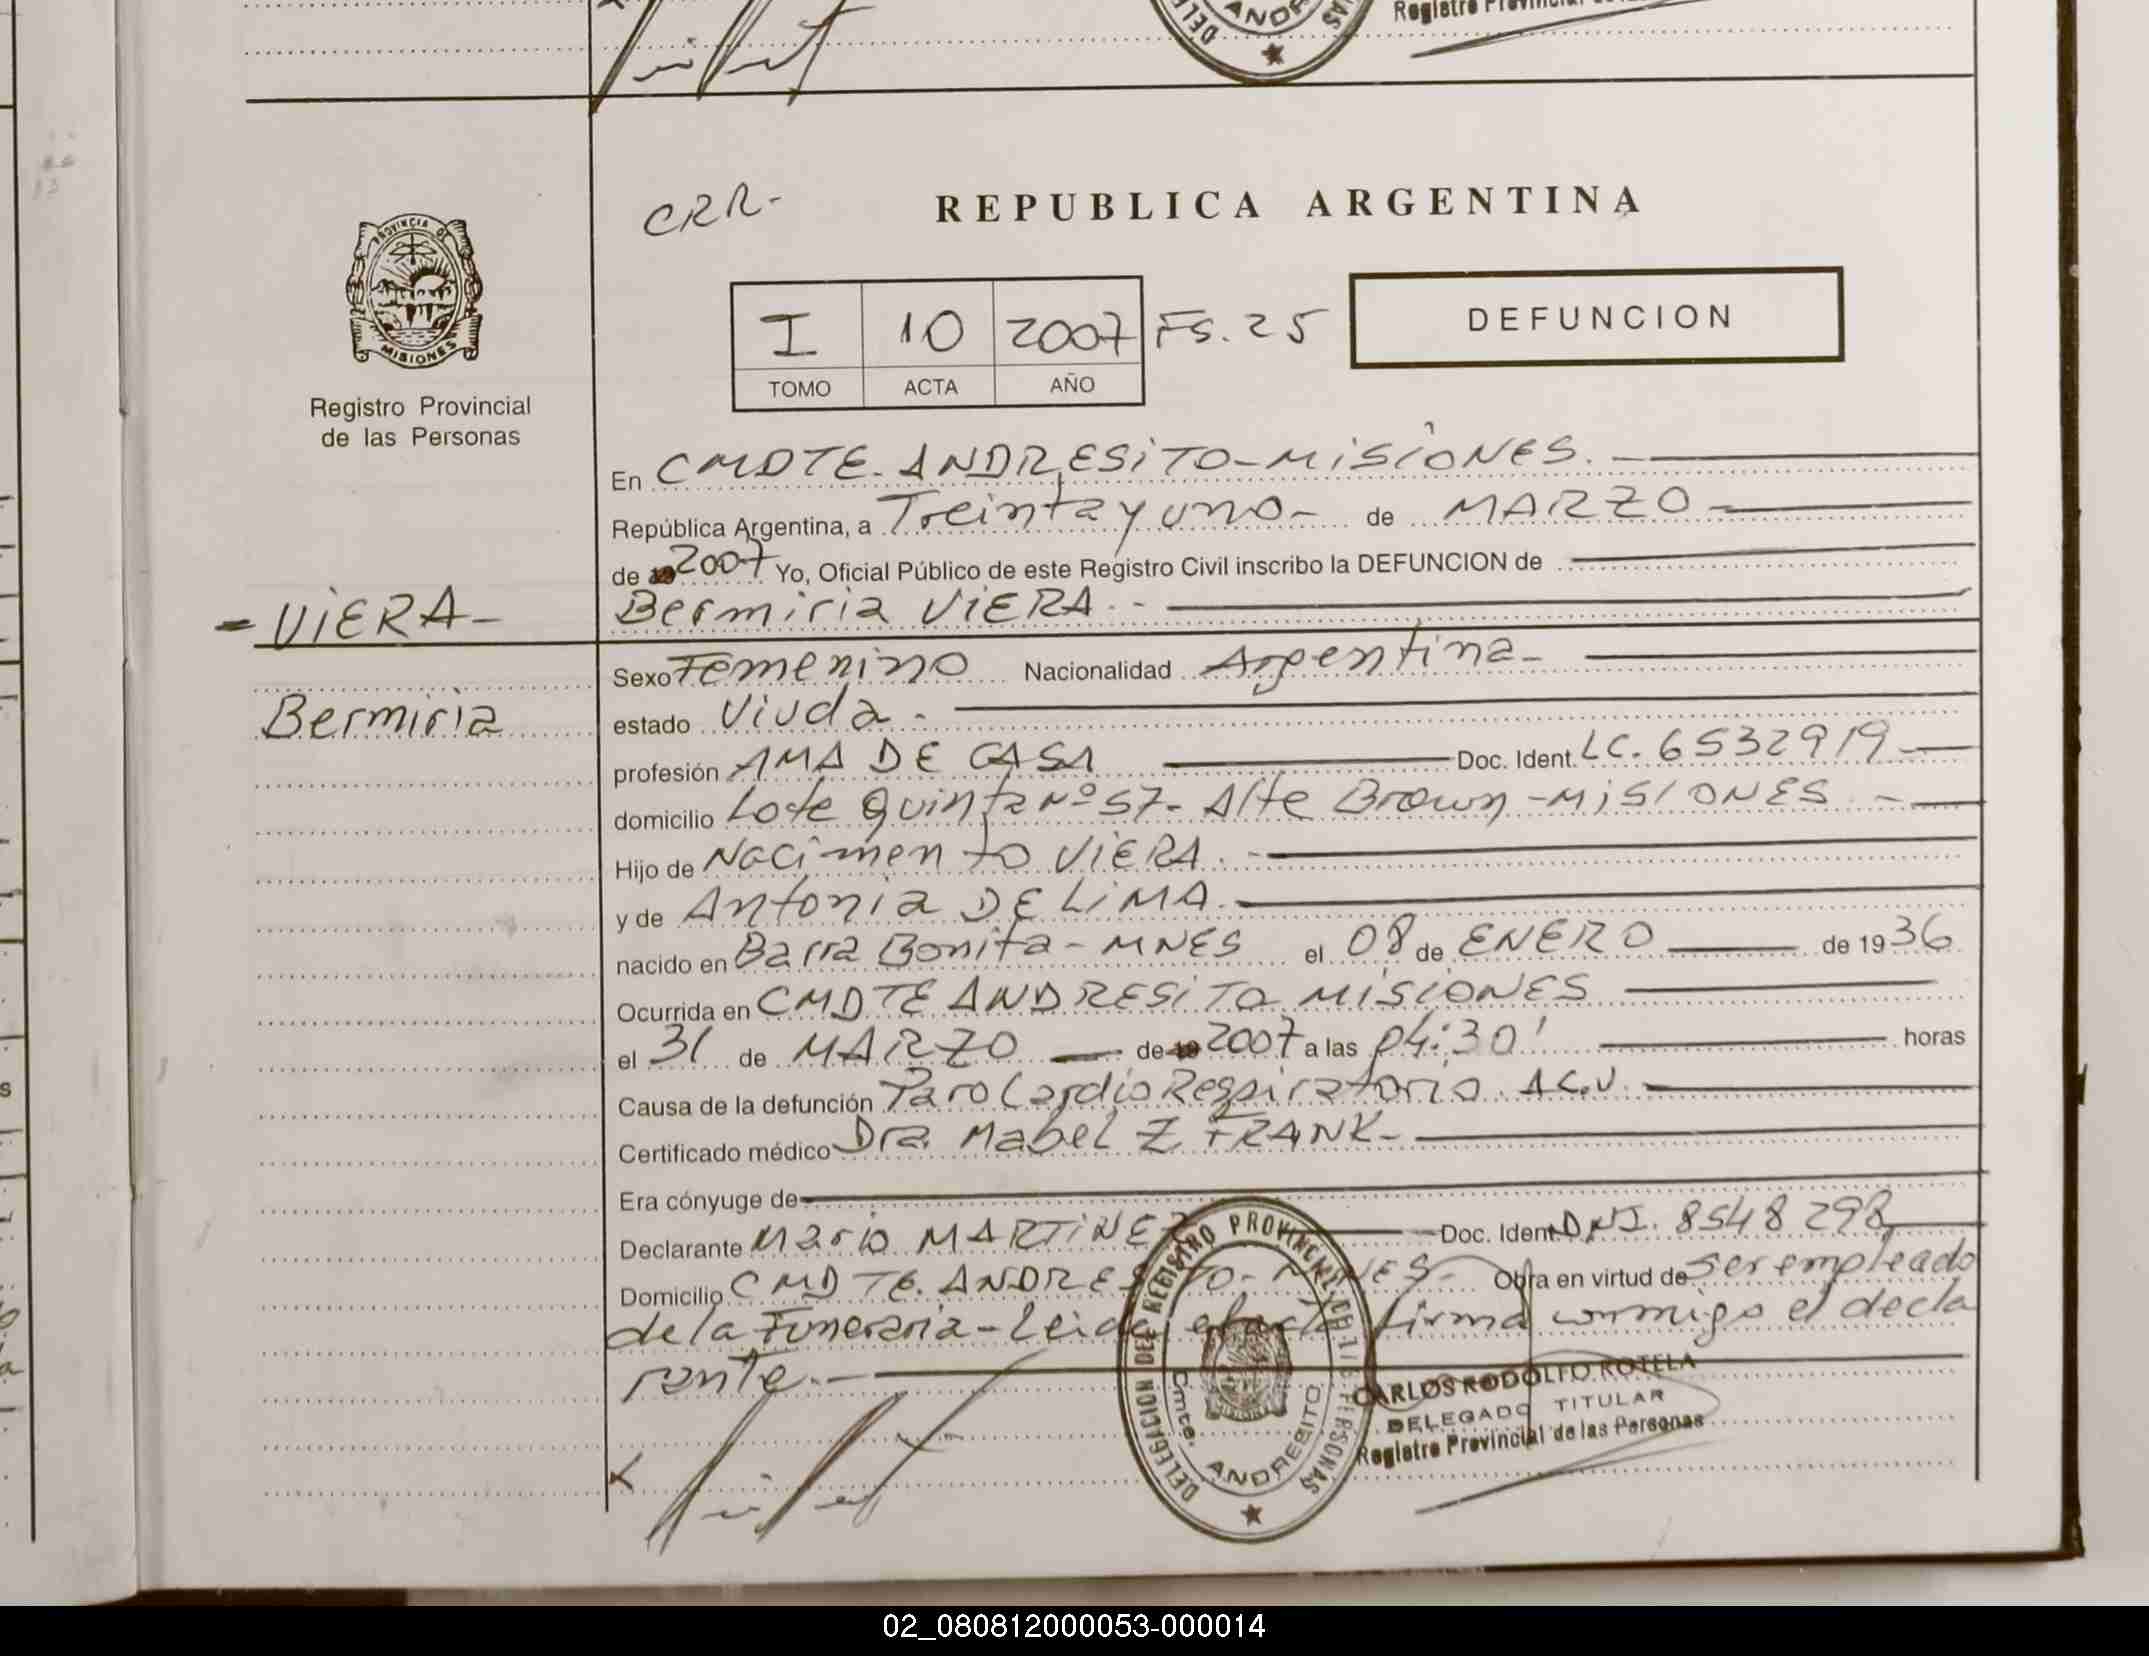 Registro Provincial
PROVINCIA DE
MISIONES
Registro Provincial
de las Personas
- VIERA -
Bermiria
CRR-
REPUBLICA ARGENTINA
I 10 2007 FS. 25
TOMO ACTA AÑO
DEFUNCION
En CMDTE. ANDRESITO-MISIONES.
República Argentina, a Treinta y uno- de MARZO
de 2007 Yo, Oficial Público de este Registro Civil inscribo la DEFUNCION de
Bermiria VIERA.-
Sexo Femenino Nacionalidad Argentina-
estado Viuda.
profesión AMA DE CASA Doc. Ident. LC. 6532919
domicilio Lote Quinta Nº 57- Alte Brown-MISIONES.-
Hijo de Nacimento VIERA.-
y de Antonia DE LIMA.
nacido en Barra Bonita - MNES el 08 de ENERO de 1936
Ocurrida en CMDTE ANDRESITO MISIONES
el 31 de MARZO de 2007 a las 04:30' horas
Causa de la defunción Paro Cardio Respiratorio. A C.V.
Certificado médico Dra. Mabel Z FRANK-
Era cónyuge de
Declarante Mario MARTINEZ Doc. Ident DNI. 8548298
Domicilio CMDTE. ANDRESITO-MNES- Obra en virtud de ser empleado
de la Funeraria - Leida el acta firma conmigo el decla
rante.-
DELEGACION DEL REGISTRO PROVINCIAL DE LAS PERSONAS
Cmte. ANDRESITO
CARLOS RODOLFO ROTELA
DELEGADO TITULAR
Registro Provincial de las Personas
02_080812000053-000014